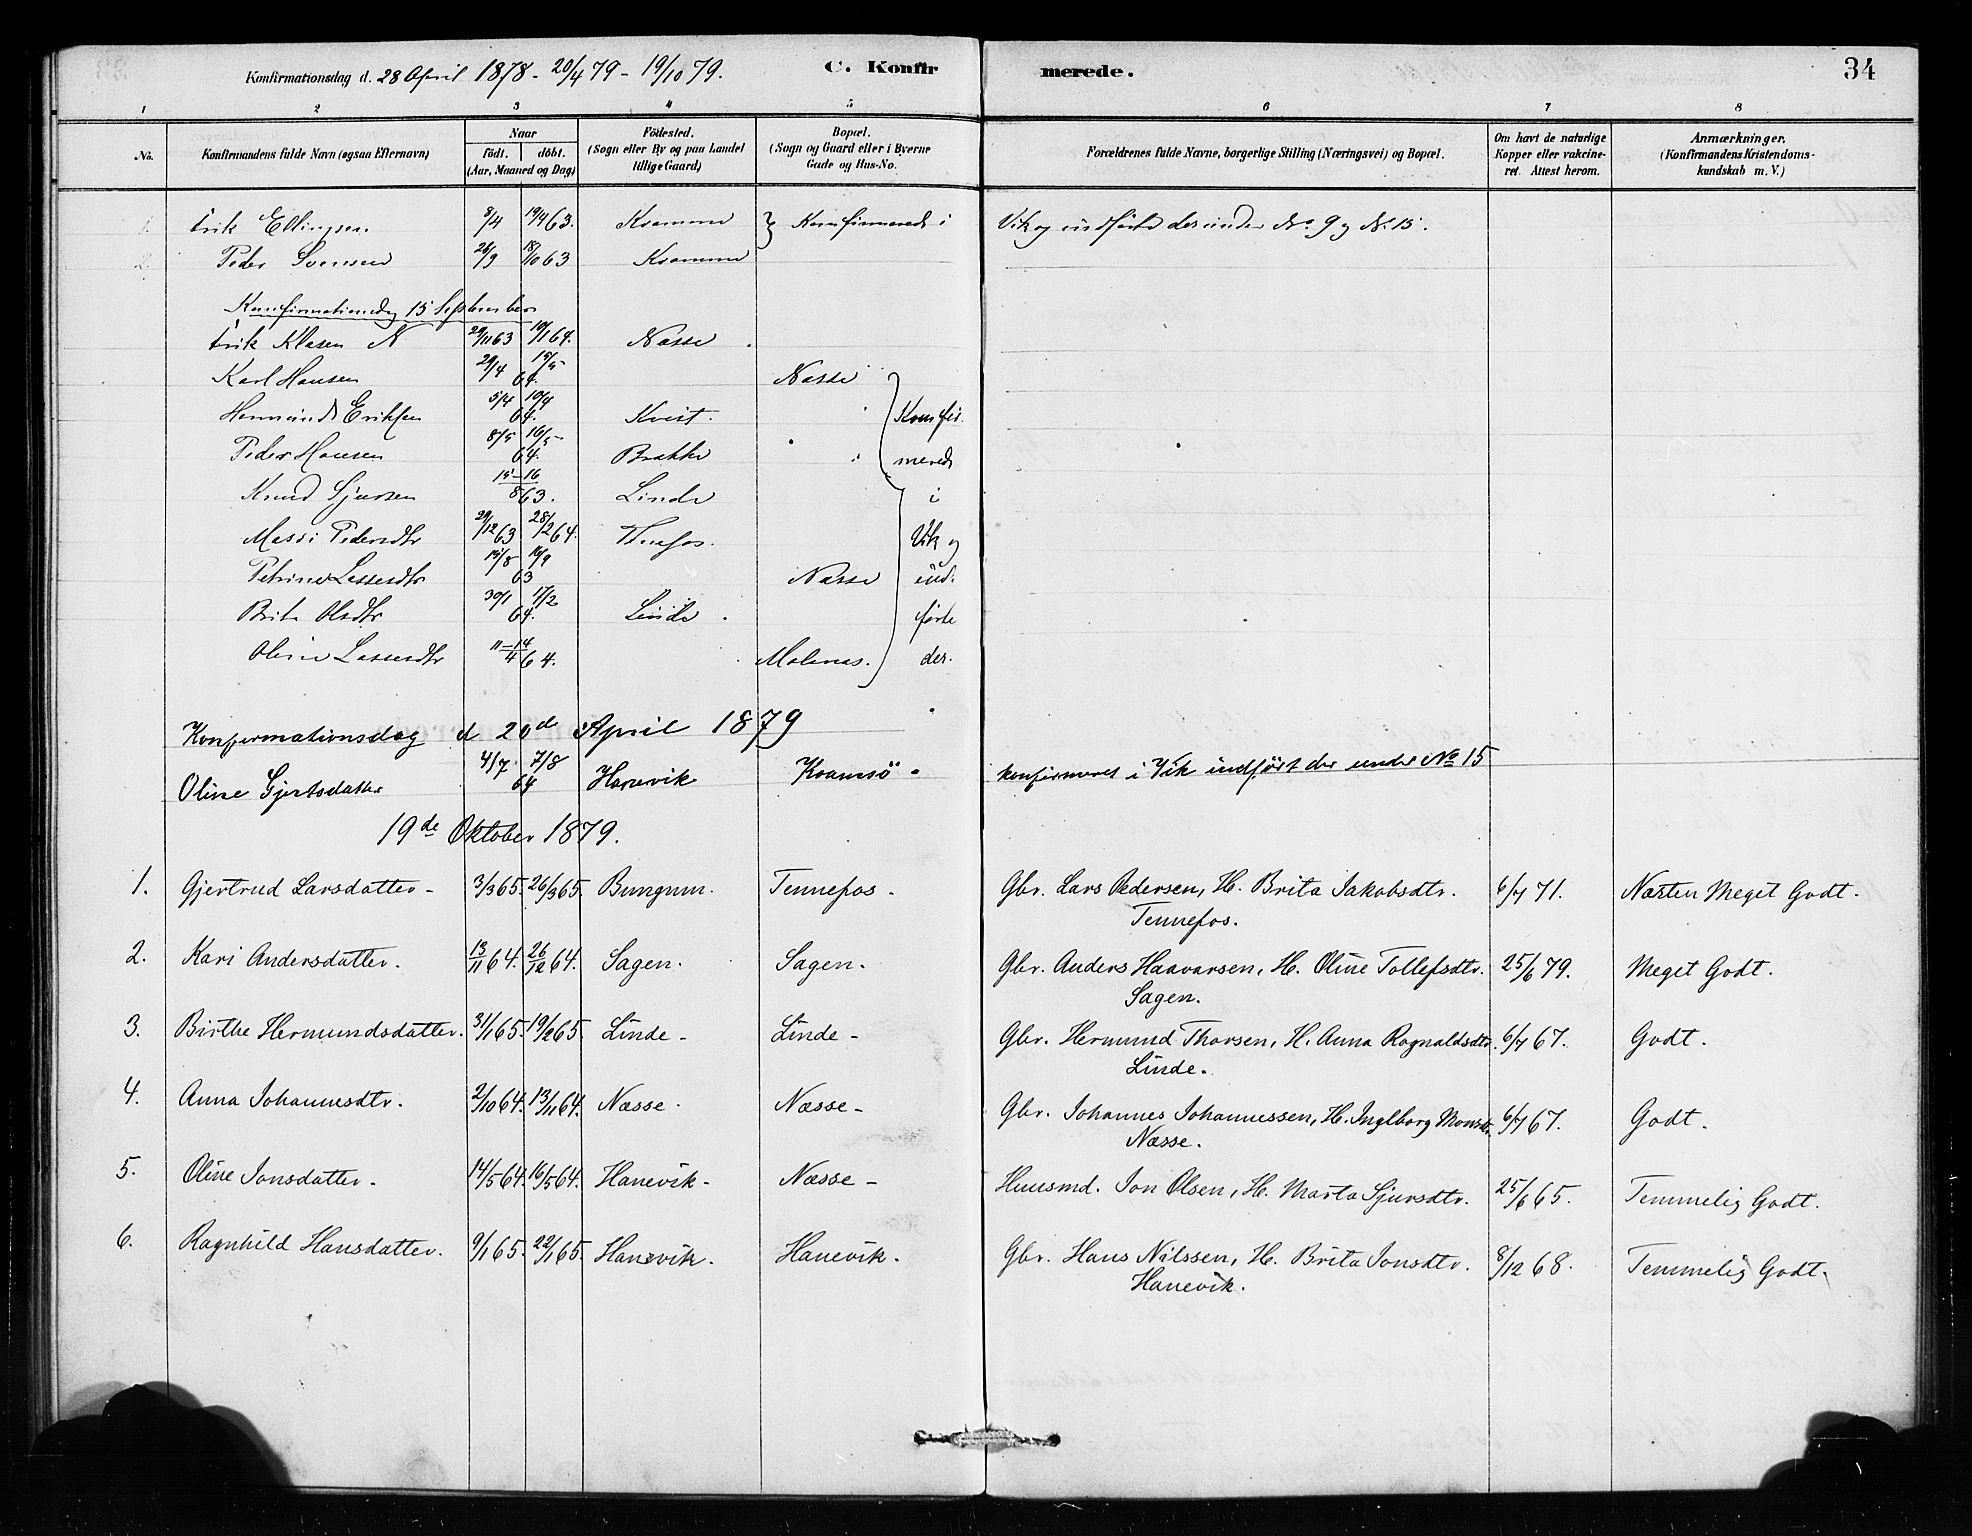 Konfirmationsdag d. 28 April 1878 - 20/4 79 - 19/10 79. C. Konfirmerede. 34
1 2 3 4 5 6 7 8
No. Konfirmandens fulde Navn (ogsaa Efternavn) Naar födt. döbt. (Aar, Maaned og Dag) Födested. (Sogn eller By og paa Landet tillige Gaard) Bopæl. (Sogn og Gaard eller i Byerne Gade og Hus-No. Forældrenes fulde Navne, borgerlige Stilling (Næringsvei) og Bopæl. Om havt de naturlige Kopper eller vakcineret. Attest herom. Anmærkninger, (Konfirmandens Kristendomskundskab m. V.)
1. Erik Ellingsen 8/4 19/4 63. Kvamme } Konfirmerede i Vik og indförte der under No. 9 og No. 15.
2. Peder Svensen 26/9 18/10 63 Kvamme
Konfirmationsdag 15 September
Erik Klasen N 29/11 63 10/1 64. Næsse.
Karl Hansen 29/4 15/5 64. Næsse
Hermund Eriksen 5/4 10/4 64. Kvist. Konfir-
Peder Hansen 8/5 16/5 64. Brække merede
Knud Sjursen 15-16/8 63. Linde i
Massi Pedersdtr 29/12 63 28/2 64. Vik og
Petrine Lassesdtr 15/8 16/9 63 Næsse ind-
Brite Olsdtr 30/1 17/2 64. Linde. förte
Oline Lassesdtr 11-14/4 64. Molenæs. der.
Konfirmationsdag d 20de April 1879
Oline Gjertsdatter 4/7 7/8 64 Hanevik Kvamsö konfirmeret i Vik indfört der under No 15
19de Oktober 1879.
1. Gjertrud Larsdatter - 3/3 65. 26/3 65. Bungum. Tennefos. Gbr. Lars Pedersen, H. Brita Jakobsdtr. 6/7 71. Næsten Meget Godt.
Tennefos.
2. Kari Andersdatter. 13/11 64. 26/12 64. Sagen. Sagen. Gbr. Anders Haavarsen, H. Oline Tollefsdtr. 25/6 79. Meget Godt.
Sagen.
3. Birthe Hermundsdatter. 31/1 65. 19/2 65. Linde - Linde - Gbr. Hermund Thorsen, H. Anna Ragnaldsdtr. 6/7 67. Godt.
Linde.
4. Anna Johannesdtr. 2/10 64. 13/11 64. Næsse. Næsse - Gbr. Johannes Johannessen, H. Inglborg Monsdtr. 6/7 67. Godt.
Næsse.
5. Oline Jonsdatter. 14/5 64. 16/5 64. Hanevik - Næsse - Huusmd. Jon Olsen, H. Marta Sjursdtr. 25/6 65. Temmelig Godt.
6. Ragnhild Hansdatter. 9/1 65. 22/1 65. Hanevik. Hanevik. Gbr. Hans Nilssen, H. Brita Jonsdtr. 8/12 68. Temmelig Godt.
Hanevik.